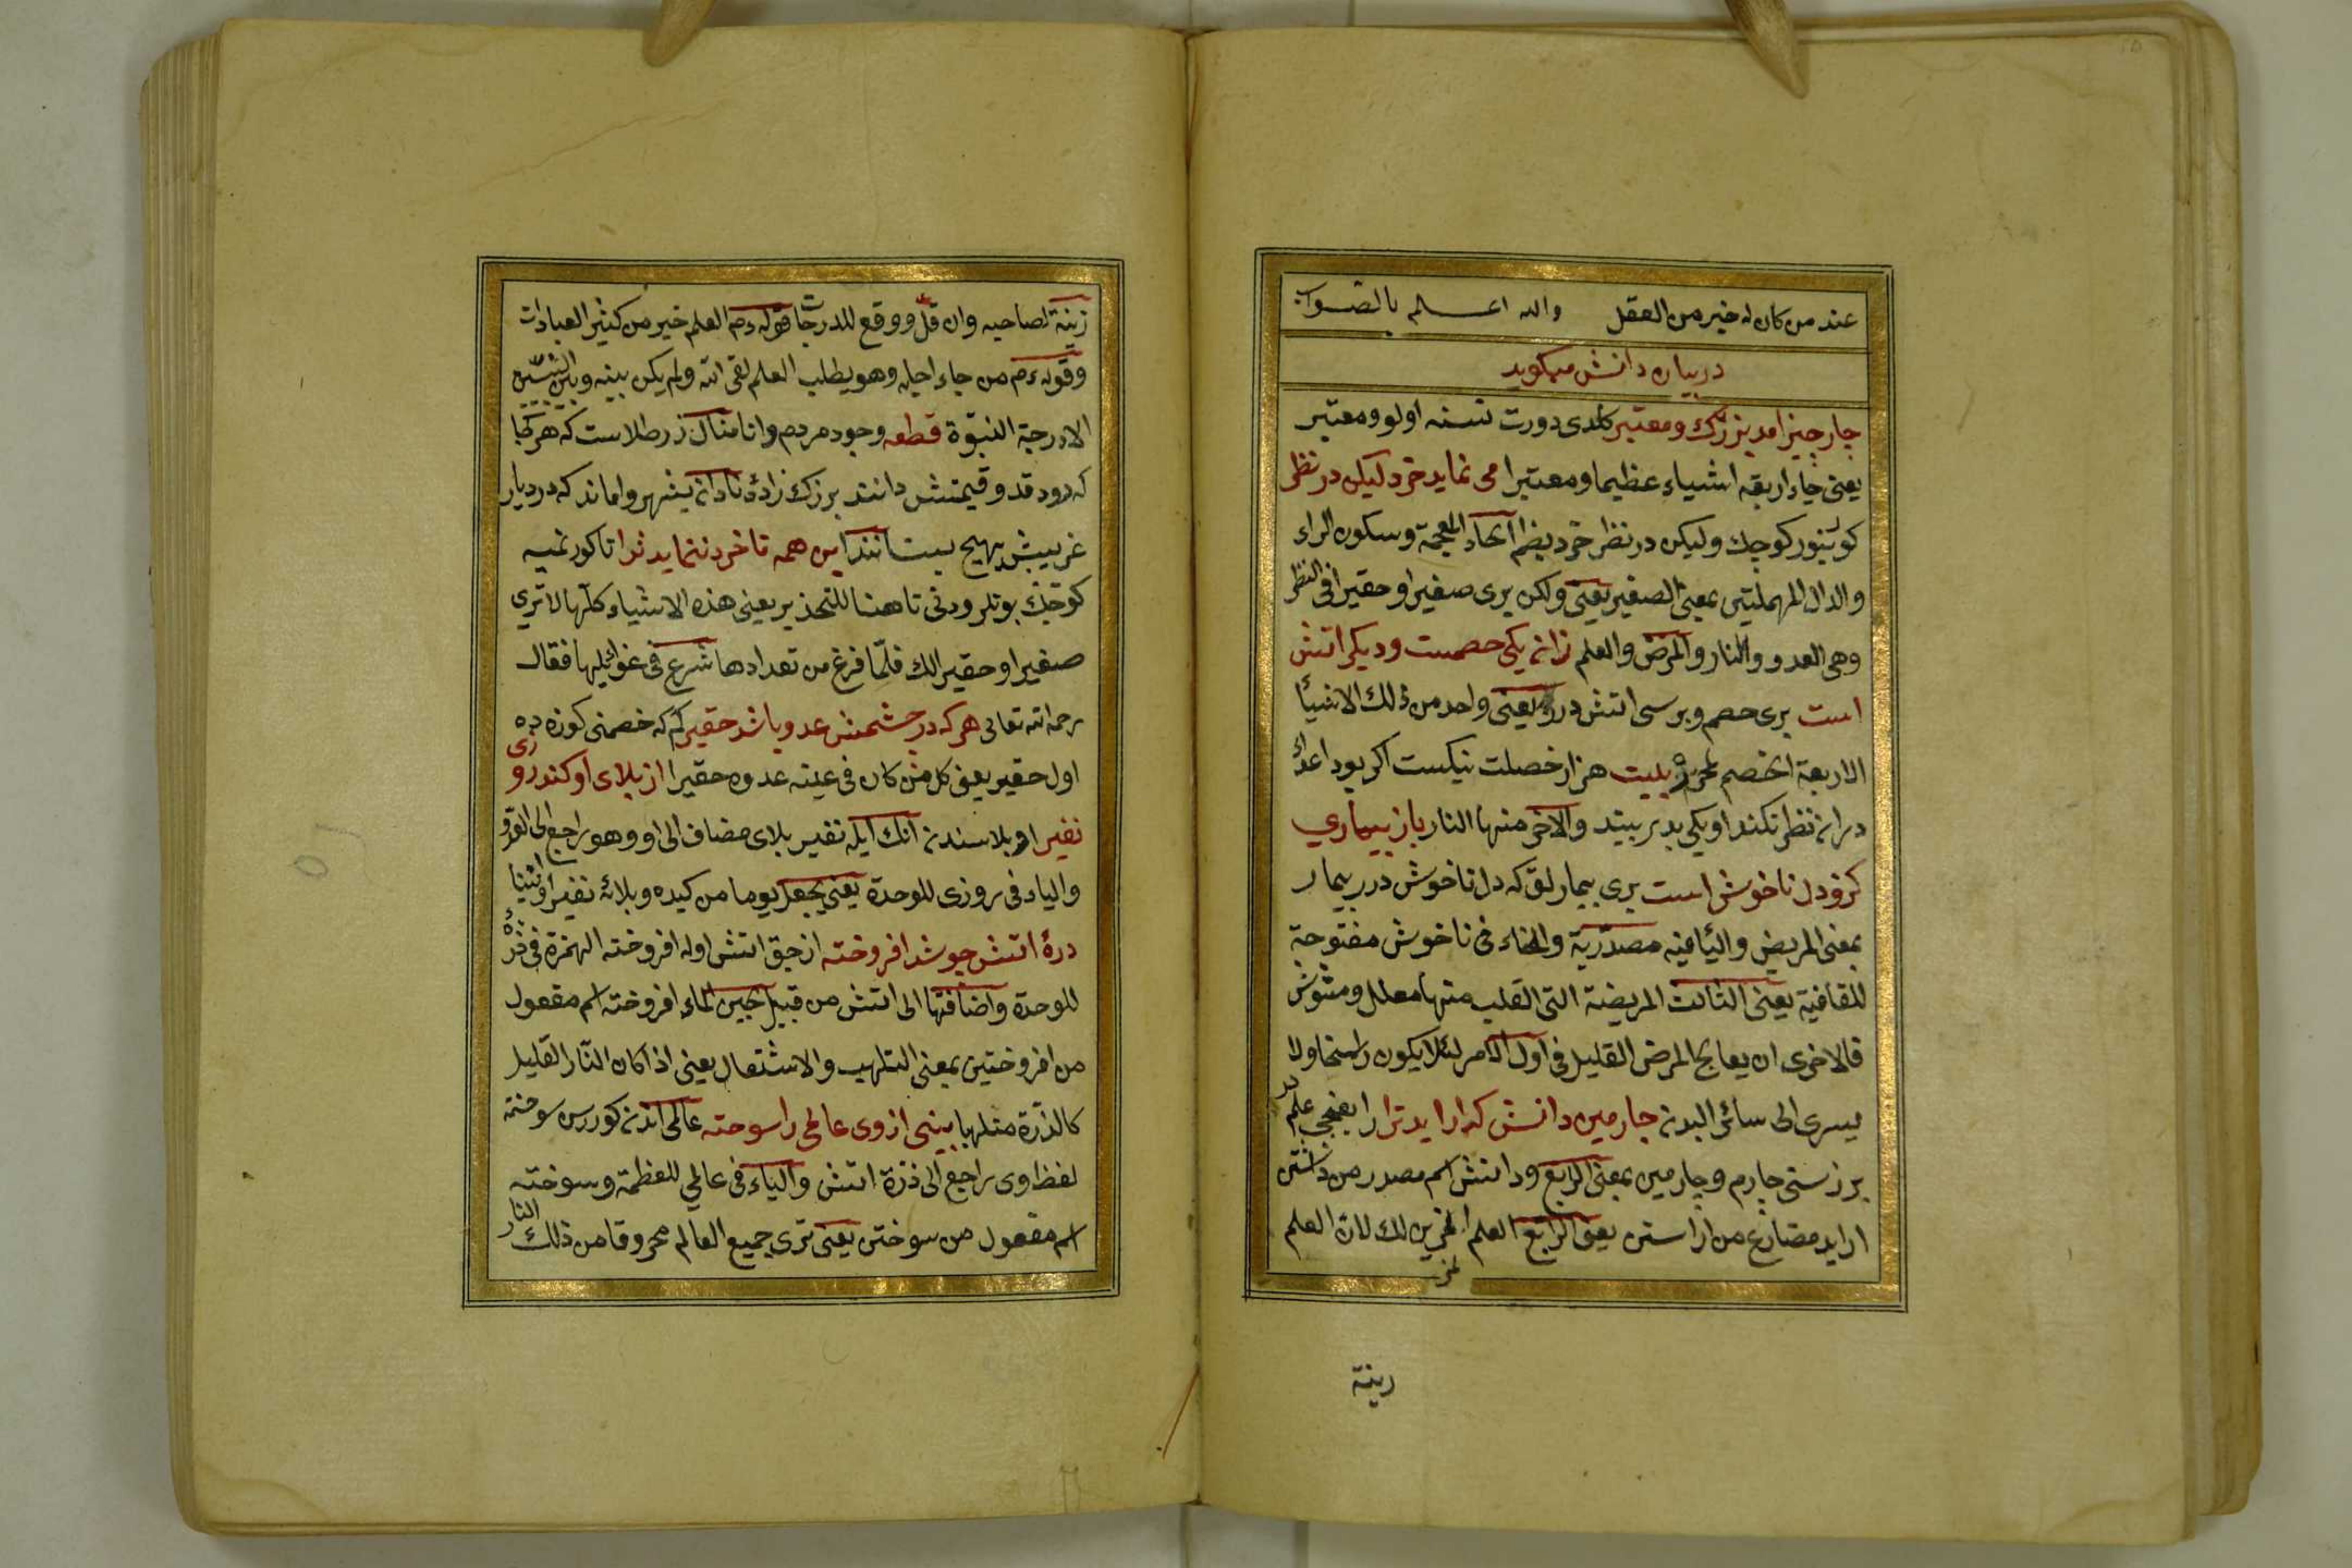 عند من كان له خير من العقل والله اعلم بالصواب
در بیان دانش میکوید
چار چیز امد بزرك و معتبر كلدی دورت نسنه اولو و معتبر
یعنی جاء اربعة اشیاء عظیما و معتبرا می نماید خرد لیکن در نظر
کورینور کوچك ولیکن در نظر خرد بضم الخاء المعجمة وسکون الراء
والدال المهملتین بمعنی الصغیر یعنی ولکن یری صغیرا و حقیرا فی النظر
وهی العدو والنار والمرض والعلم زانه یکی خصمست ودیکر اتش
است بری خصم و بریسی اتش در یعنی واحد من ذلك الاشیاء
الاربعة الخصم بیت هزار خصلت نیکست اکر بود اعداء
دران نظر نکند او یکی بد ببیند والاخر منها النار باز بیماری
کزو دل ناخوش است بری بیمارلق که دل ناخوش در بیمار
بمعنی المریض والیاء فیه مصدریة والخاء فی ناخوش مفتوحة
للقافیة یعنی الثالث المریضة التی القلب منها معلل ومشوش
فالاخری ان یعالج المرض القلیل فی اول الامر لئلا یکون راسخا ولا
یسری الی سائر البدن چارمین دانش که اراید ترا رابعنجی علم در
بزر سنی چارم و چارمین بمعنی الرابع ودانش اسم مصدر من دانستن
اراید مضارع من اراستن یعنی الرابع العلم المزین لك لان العلم
زینة
زینة لصاحبه وان قل ووقع للدرجات قوله عم العلم خیر من کثیر العبادات
وقوله عم من جاء اجله وهو یطلب العلم لقی الله ولم یکن بینه وبین النبیین
الا درجة النبوة قطعه وجود مردم دانا مثال زر طلاست که هر کجا
که رود قدر وقیمتش دانند بزرك زادۀ نادان بشهر واماند که در دیار
غریبش بهیچ نستانند این همه تا خرد ننماید ترا تا کورنمیه
کوچك بونلر ودخی تا هنا للتحذیر یعنی هذه الاشیاء کلها لا تری
صغیرا و حقیرا لك فلما فرغ من تعدادها شرع فی غوائلها فقال
رحمه الله تعالی هر که در چشمش عدو باشد حقیر کم که خصمنی کوزه ده
اول حقیر یعنی کل من کان فی عینه عدوه حقیرا از بلای او کند روزی
نفیر او بلاسندن انك ایله نفیر بلای مضاف الی او وهو راجع الی العدو
والیاء فی روزی للوحدة یعنی یجعل یوما من کیده وبلائه نفیرا وانینا
ذرۀ اتش چو شد افروخته ازجق اتش اوله افروخته الهمزة فی ذرۀ
للوحدة واضافتها الی اتش من قبیل لجین الماء افروخته اسم مفعول
من افروختن بمعنی التلهیب والاشتعال یعنی اذا کان النار القلیل
کالذرة متلهبا بینی از وی عالمی را سوخته عالمی اندن کوررسن سوخته
لفظ وی راجع الی ذرۀ اتش والیاء فی عالمی للعظمة وسوخته
اسم مفعول من سوختن یعنی تری جمیع العالم محروقا من ذلك النار